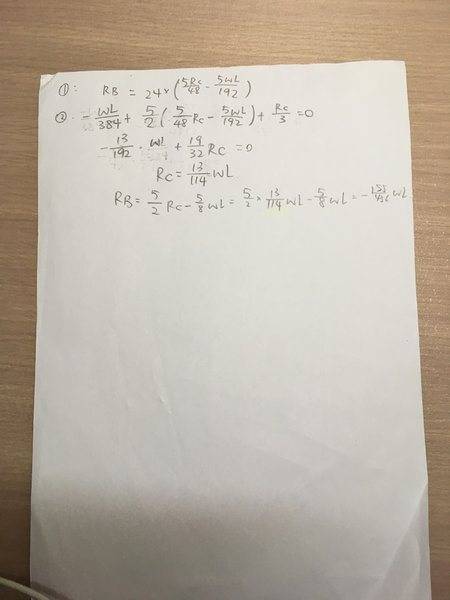 ①: RB = 24 × (5Rc/48 - 5wL/192)
② -wL/384 + 5/2 (5/48 Rc - 5wL/192) + Rc/3 = 0
-13/192 · wL + 19/32 Rc = 0
Rc = 13/114 wL
RB = 5/2 Rc - 5/8 wL = 5/2 × 13/114 wL - 5/8 wL = - wL